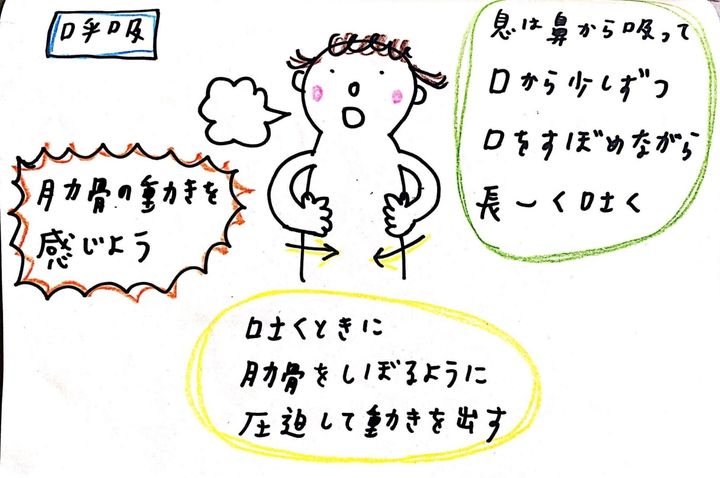 呼吸
息は鼻から吸って
口から少しずつ
口をすぼめながら
長ーく吐く
肋骨の動きを
感じよう
吐くときに
肋骨をしぼるように
圧迫して動きを出す